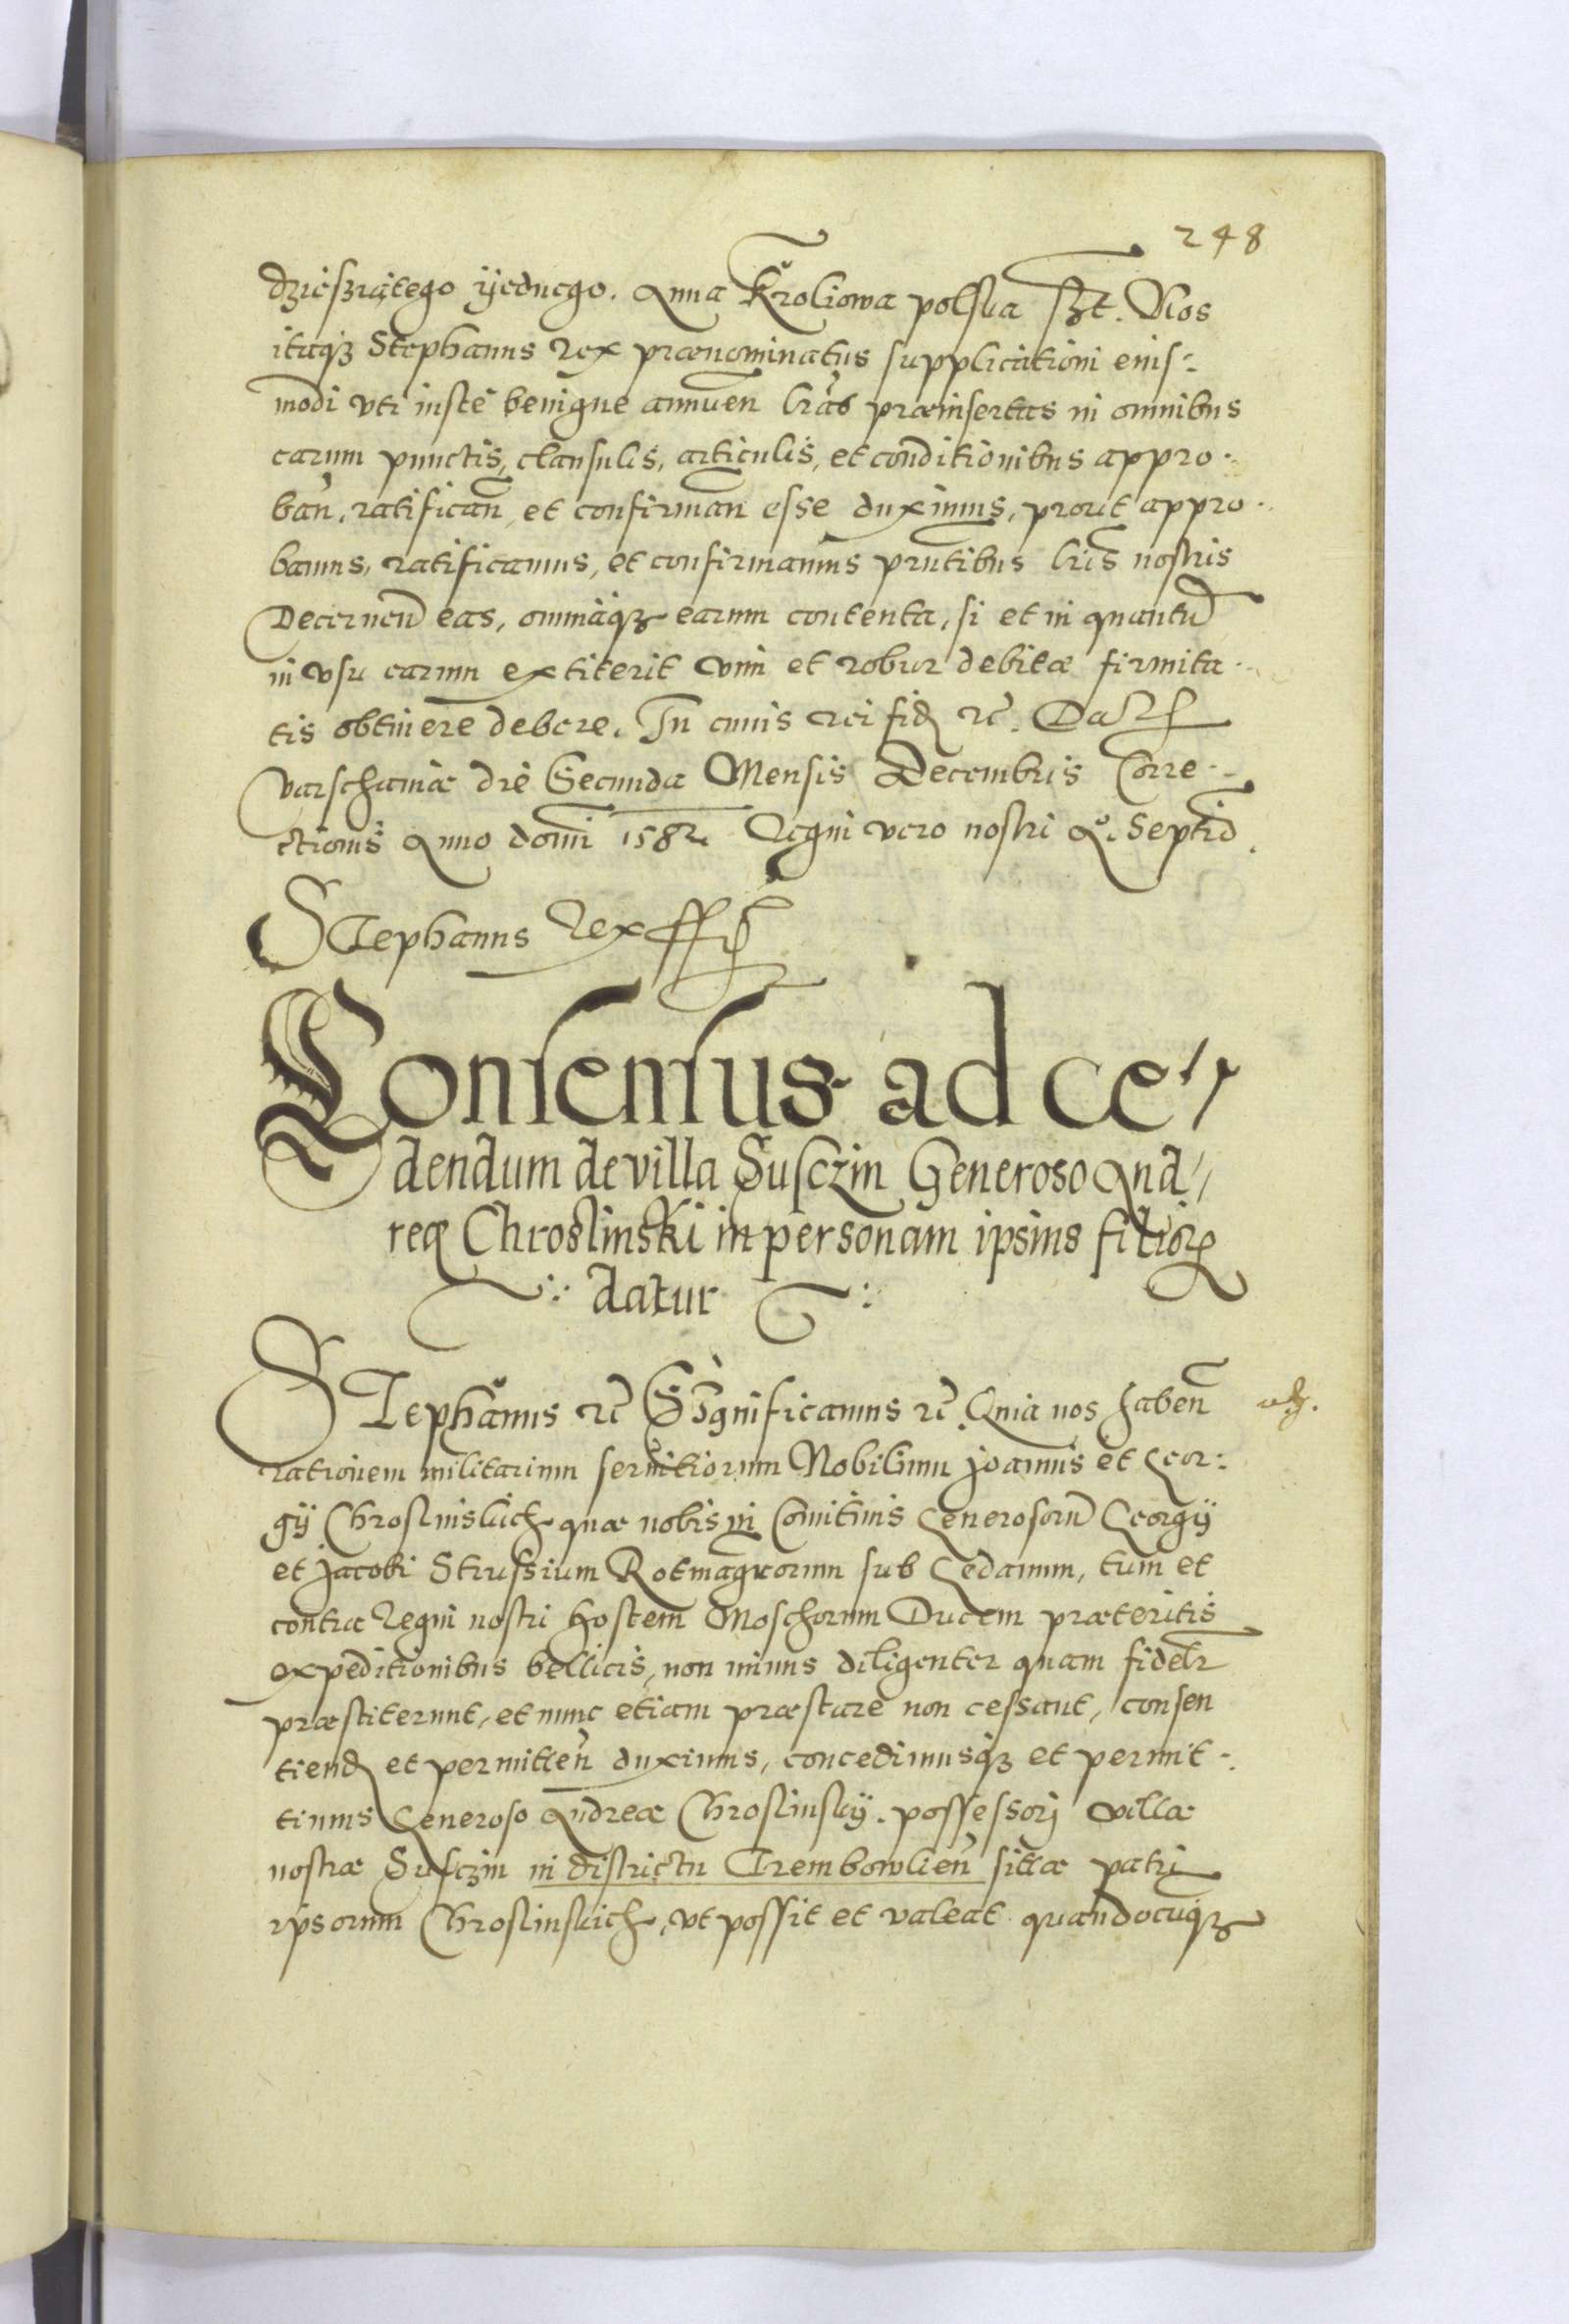 248
dzieszątego yednego. Anna Kroliowa polska sst. Nos
itaqz Stephanus Rex prænominatus supplicationi eius:
modi vti iuste benigne annuen lras præinsertas in omnibus
earum punctis, clausulis, articulis, et conditionibus appro.
ban, ratifican, et confirman esse duximus, prout appro.
bamus, ratificamus, et confirmamus pntibus lris nostris
Decernen eas, omniaqz earum contenta, si et in quantu
in vsu earum extiterit vim et robur debitæ firmita..
tis obtinere debere. In cuius rei fid rc. Dat
Varschaviæ die Secunda Mensis Decembris Corre..
ctionis Anno domi 1582 Regni vero nostri Ao. Septio.
Stephanus Rex sst
Consensus ad ce,,
dendum de villa Susczin Generoso And,,
reæ Chroslinski in personam ipsius filior
datur
Stephanus rc Significamus rc. Quia nos haben
rationem militarium servitiorum Nobilium Joannis et Geor:
gy Chroslinskich quæ nobis in Comitivis Generosoru Georgy
et Jacobi Strussium Rotmagrorum sub Gedanum, tum et
contra Regni nostri hostem Moschorum Ducem præteritis
expeditionibus bellicis, non minus diligenter quam fidelr
præstiterunt, et nunc etiam præstare non cessant, consen
tiend et permitten duximus, concedimusqz et permit..
timus Generoso Andreæ Chroslinsky. possessorj villæ
nostræ Susczin in districtu Trembowlien sitæ patri
ipsorum Chroslinskich, vt possit et valeat quandocuqz